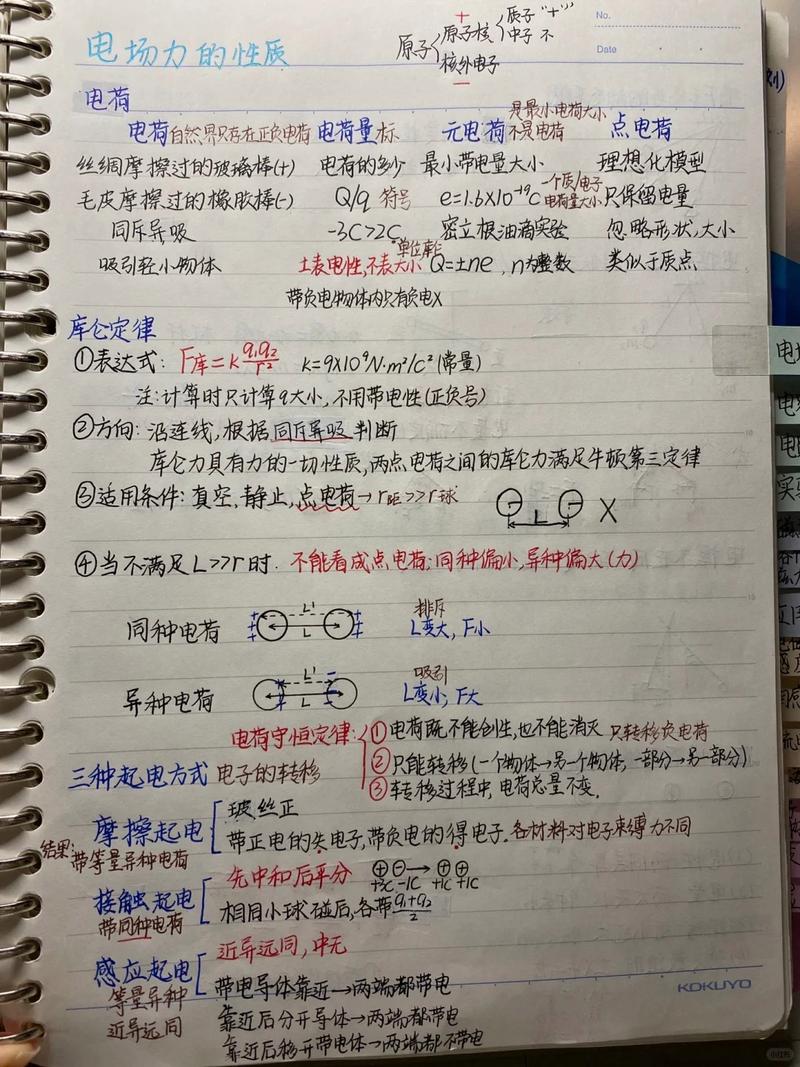 电场力的性质
原子 原子核 质子“+”
中子 不
核外电子
+
−
No.
Date
电荷
电荷 自然界只存在正负电荷 电荷量 标 元电荷 是最小电荷大小 不是电荷 点电荷
丝绸摩擦过的玻璃棒(+) 电荷的多少 最小带电量大小 理想化模型
毛皮摩擦过的橡胶棒(-) Q/q 符号 e=1.6×10⁻¹⁹C 一个质/电子电荷量大小 只保留电量
同斥异吸 -3C>2C 密立根油滴实验 忽略形状,大小
吸引轻小物体 ±表电性,不表大小 Q=±ne,n为整数 类似于质点
带负电物体内只有负电X
库仑定律
①表达式: F库=k q₁q₂/r² k=9×10⁹N·m²/C²(常量)
注:计算时只计算q大小,不用带电性(正负号)
②方向:沿连线,根据同斥异吸判断
库仑力具有力的一切性质,两点电荷之间的库仑力满足牛顿第三定律
③适用条件:真空,静止,点电荷→r距>>r球
L X
④当不满足L>>r时.不能看成点电荷:同种偏小,异种偏大(力)
同种电荷 L' L 排斥 L变大,F小
异种电荷 L' L 吸引 L变小,F大
电荷守恒定律: ①电荷既不能创生,也不能消灭 只转移负电荷
②只能转移(一个物体→另一个物体,一部分→另一部分)
③转移过程中,电荷总量不变.
三种起电方式 电子的转移
摩擦起电 玻丝正
带正电的失电子,带负电的得电子.各材料对电子束缚力不同
结果:带等量异种电荷
接触起电 先中和后平分 ⊕⊖→⊕⊕
+3C -1C +1C +1C
带同种电荷 相同小球碰后,各带 q₁+q₂/2
感应起电 近异远同,中无
等量异种 带电导体靠近→两端都带电
近异远同 靠近后分开导体→两端都带电
靠近后移开带电体→两端都不带电
KOKUYO
小红书